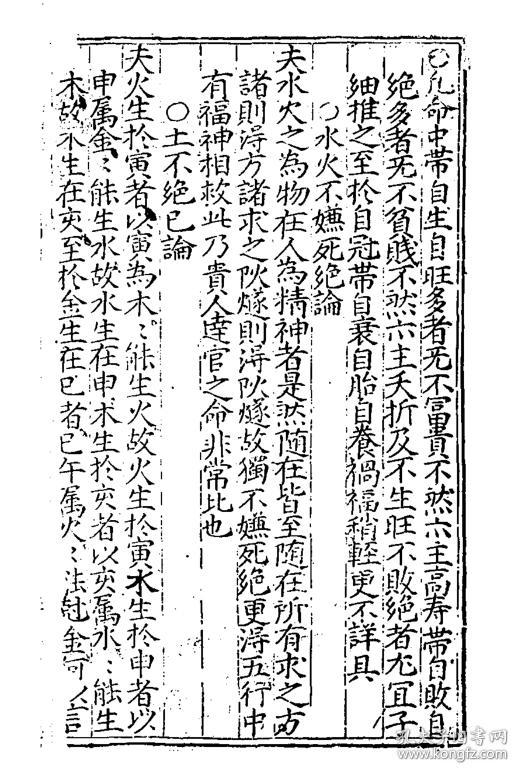 ○凡命中帶自生自旺多者旡不冨貴不然亦主高寿帶自敗自
絶多者旡不貧賤不然亦主夭折及不生旺不敗絶者尤冝子
細推之至於自冠帶自衰自胎自養禍福稍輕更不詳具
○水火不嫌死絶論
夫水火之為物在人為精神者是然随在皆至随在所有求之方
諸則淂方諸求之阦燧則淂阦燧故獨不嫌死絶更淂五行中
有福神相救此乃貴人逹官之命非常比也
○土不絶巳論
夫火生於寅者以寅為木〻能生火故火生於寅水生於申者以
申属金〻能生水故水生在申木生於亥者以亥属水〻能生
木故木生在亥至於金生在巳者巳午属火〻法尅金可以言
孔夫子旧书网